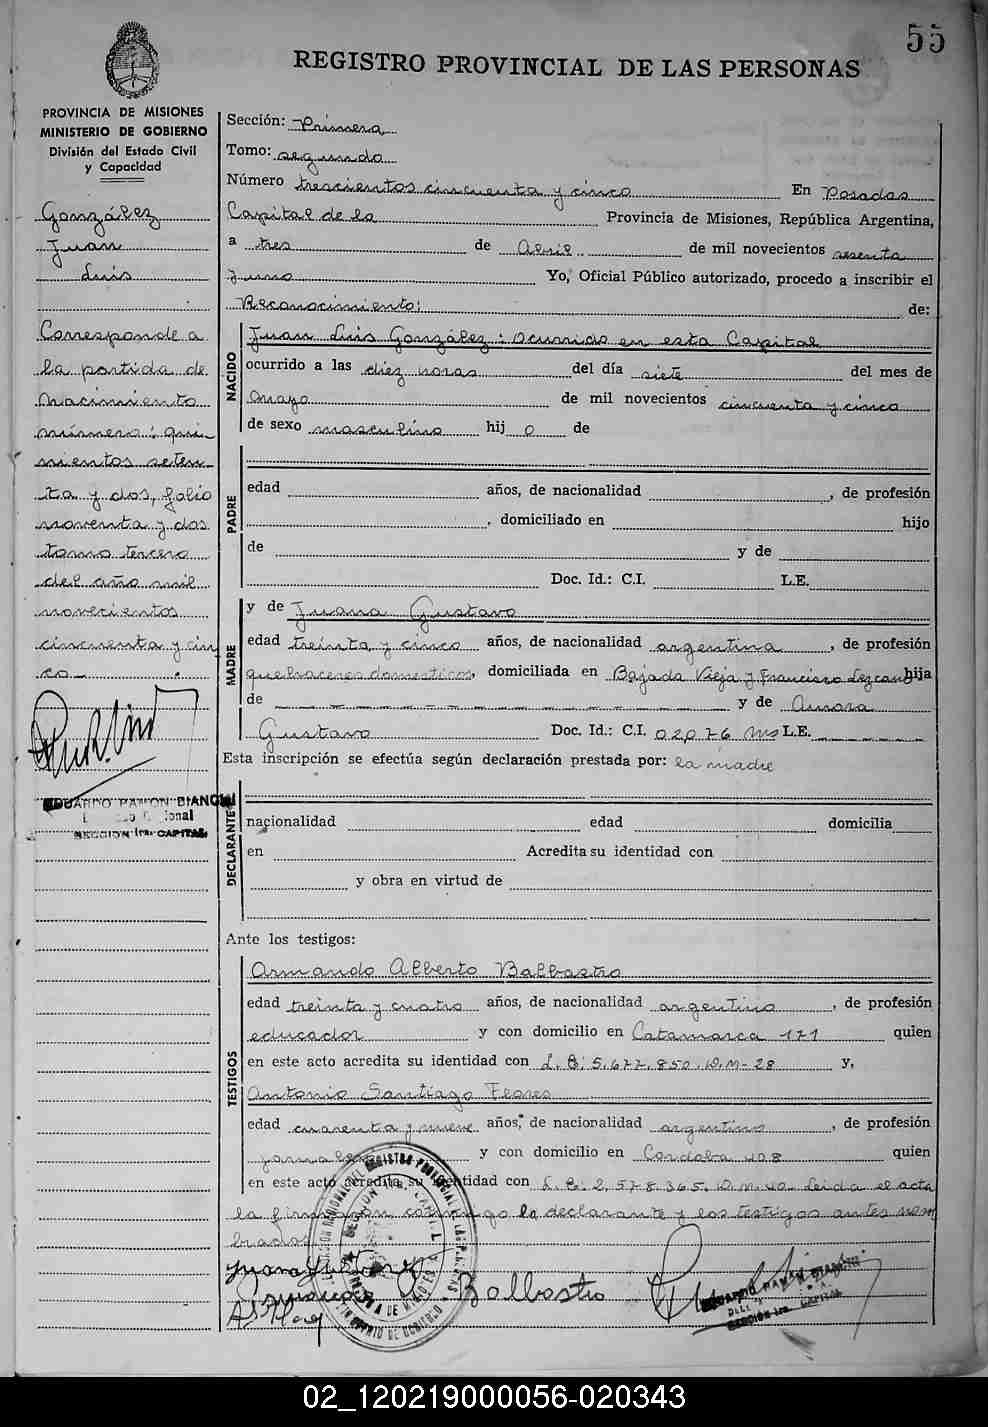 55
REGISTRO PROVINCIAL DE LAS PERSONAS
PROVINCIA DE MISIONES
MINISTERIO DE GOBIERNO
División del Estado Civil
y Capacidad
González
Juan
Luis
Corresponde a
la partida de
Nacimiento
número: qui-
nientos seten-
ta y dos, folio
noventa y dos
tomo tercero
del año mil
novecientos
cincuenta y cin
co
EDUARDO RAMON BIANCHI
SECCION 1ra. CAPITAL
Sección: Primera
Tomo: segundo
Número trescientos cincuenta y cinco En Posadas
Capital de la Provincia de Misiones, República Argentina,
a tres de Abril de mil novecientos sesenta
y uno Yo, Oficial Público autorizado, procedo a inscribir el
Reconocimiento: de:
NACIDO
Juan Luis González: ocurrido en esta Capital
ocurrido a las diez horas del día siete del mes de
Mayo de mil novecientos cincuenta y cinco
de sexo masculino hij o de
PADRE
edad años, de nacionalidad , de profesión
, domiciliado en hijo
de y de
Doc. Id.: C.I. L.E.
MADRE
y de Juana Gustavo
edad treinta y cinco años, de nacionalidad argentina , de profesión
quehaceres domesticos, domiciliada en Bajada Vieja y Francisco Lezcano hija
de y de Aurora
Gustavo Doc. Id.: C.I. 02076 Ms L.E.
Esta inscripción se efectúa según declaración prestada por: la madre
DECLARANTE
nacionalidad edad domicilia
en Acredita su identidad con
y obra en virtud de
Ante los testigos:
TESTIGOS
Armando Alberto Balbastro
edad treinta y cuatro años, de nacionalidad argentino , de profesión
educador y con domicilio en Catamarca 171 quien
en este acto acredita su identidad con L. E: 5.677.850. D.M-28 y,
Antonio Santiago Flores
edad cuarenta y nueve años, de nacionalidad argentino , de profesión
y con domicilio en Cordoba 408 quien
en este acto acredita su identidad con L. E: 2.578.365. D.M. 40. Leida el acta
la firmaron, conmigo la declarante y los testigos antes nom
brados
Juana Gustavo
Balbastro
EDUARDO RAMON BIANCHI
SECCION 1ra. CAPITAL
02_120219000056-020343